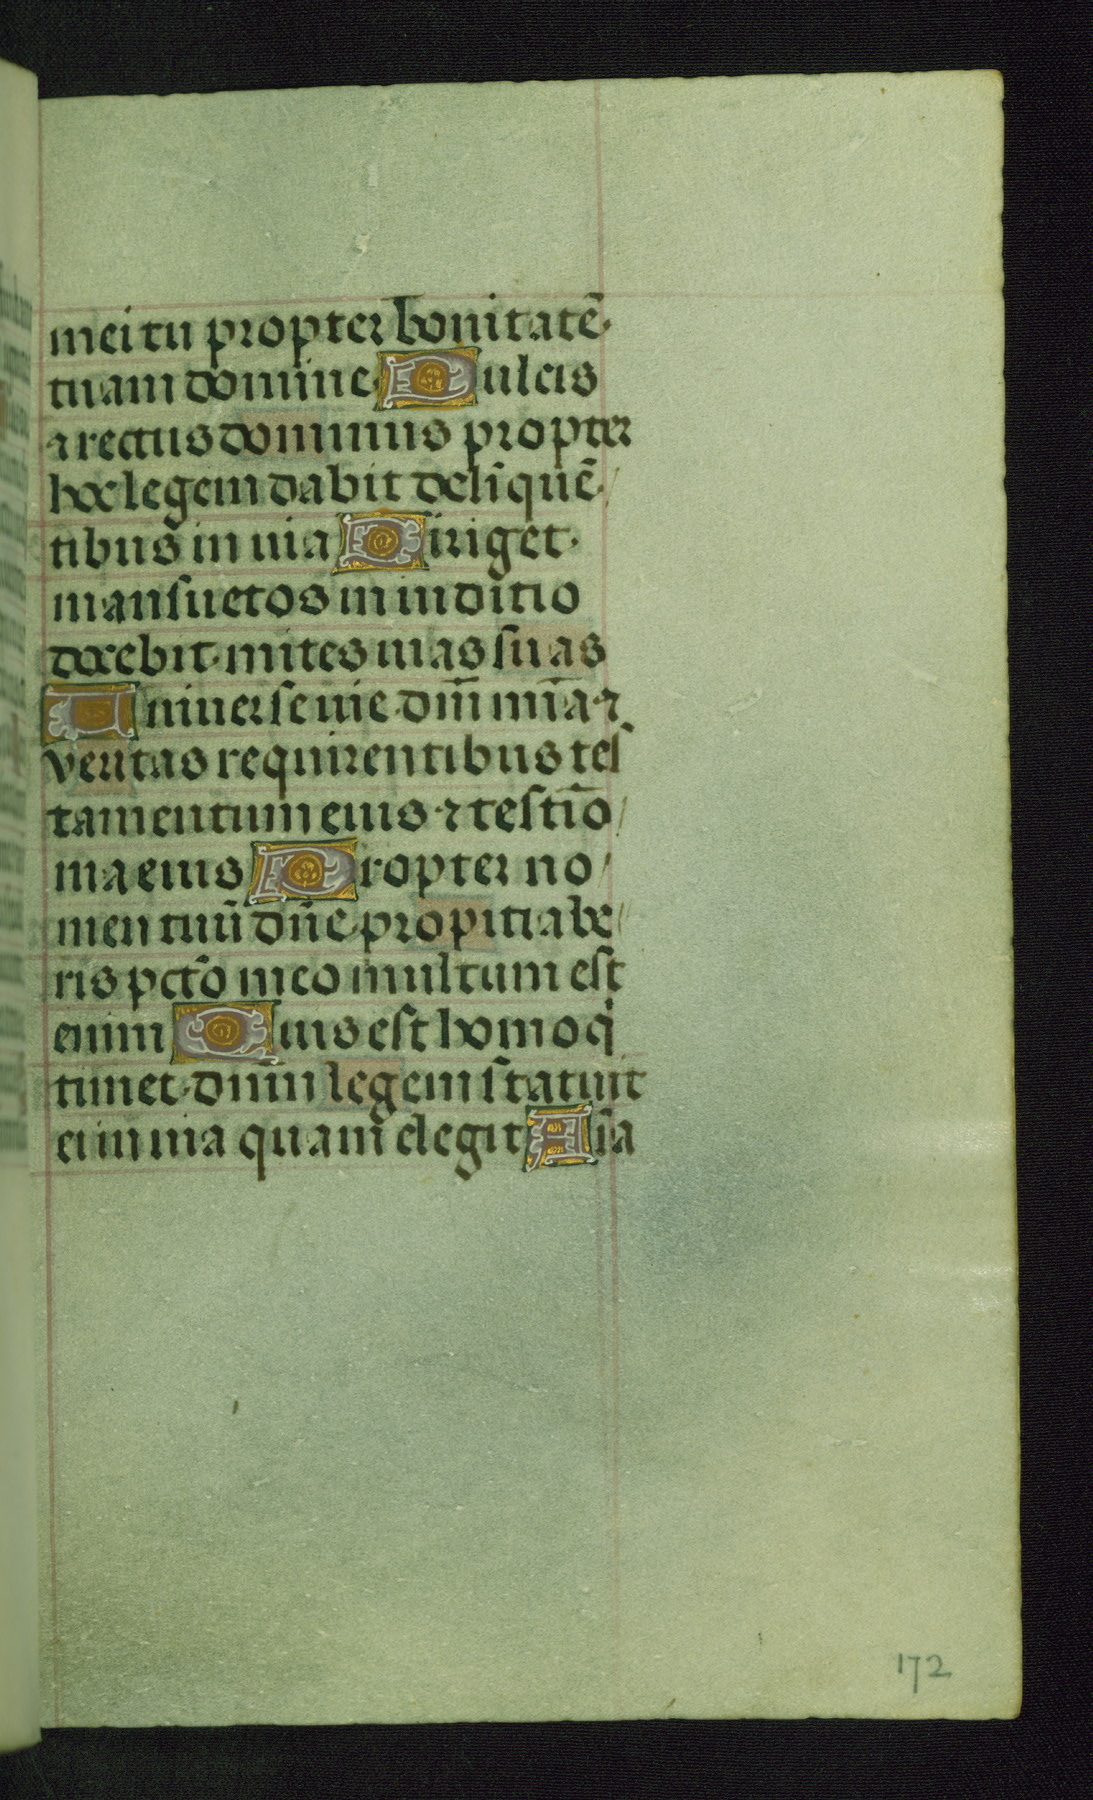 mei tu propter bonitatē
tuam domine Dulcis
⁊ rectus dominus propter
hoc legem dabit delīquē/
tibus in uia Diriget
mansuetos in iuditio
docebit mites uias suas
Uniuerse uie dm̄i mīa ⁊
veritas requirentibus tes
tamentum eius ⁊ testīo/
nia eius Propter no/
men tuū dn̄e propitiabe/
ris pctō meo multum est
enim Quis est homo q
timet dnm̄ legem statuit
ei in uia quam elegit Aīa
172